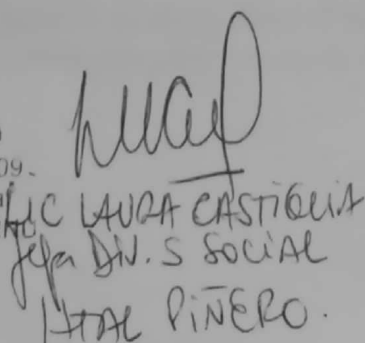 09.
LIC LAURA CASTIGLIA
Jefa DIV. S SOCIAL
HTAL PIÑERO.